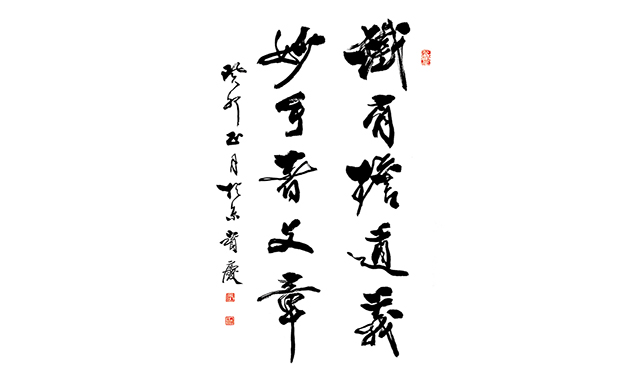 鐵肩擔道義
妙手著文章
癸卯正月於京慶